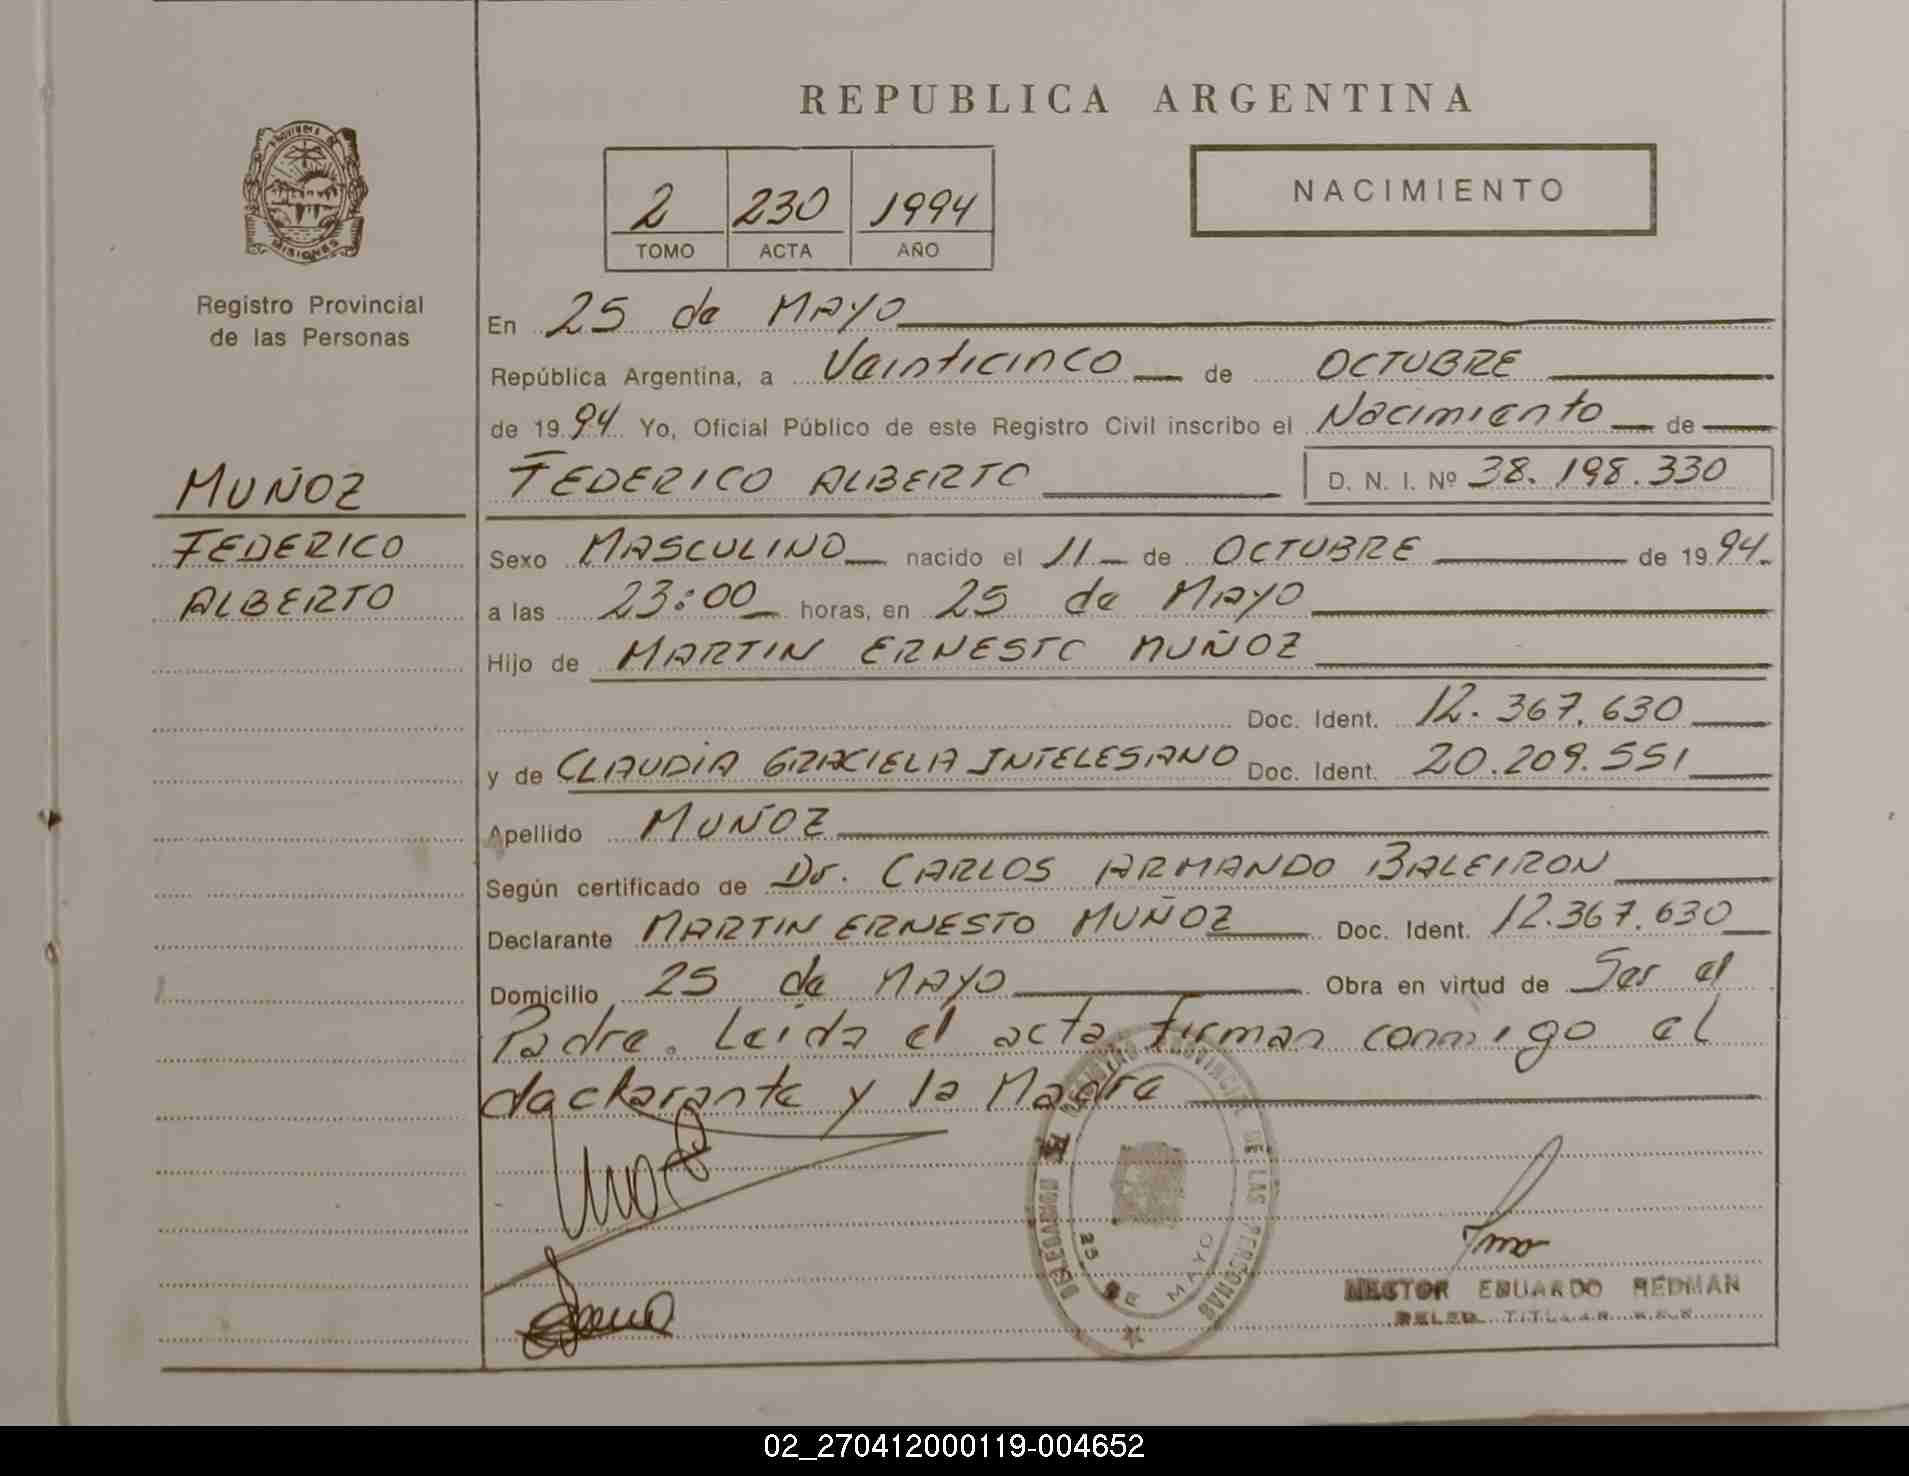 REPUBLICA ARGENTINA
PROVINCIA DE
MISIONES
Registro Provincial
de las Personas
2 230 1994
TOMO ACTA AÑO
NACIMIENTO
En 25 de MAYO
República Argentina, a Veinticinco de OCTUBRE
de 1994 Yo, Oficial Público de este Registro Civil inscribo el Nacimiento de
FEDERICO ALBERTO D. N. I. Nº 38.198.330
MUÑOZ
FEDERICO
ALBERTO
Sexo MASCULINO nacido el 11 de OCTUBRE de 1994.
a las 23:00 horas, en 25 de MAYO
Hijo de MARTIN ERNESTO MUÑOZ
Doc. Ident. 12.367.630
y de CLAUDIA GRACIELA INTELESANO Doc. Ident. 20.209.551
Apellido MUÑOZ
Según certificado de Dr. CARLOS ARMANDO BALEIRON
Declarante MARTIN ERNESTO MUÑOZ Doc. Ident. 12.367.630
Domicilio 25 de MAYO Obra en virtud de Ser el
Padre. Leída el acta firman conmigo el
declarante y la Madre
REGISTRO PROVINCIAL DE LAS PERSONAS
DELEGACION
25 DE MAYO
NESTOR EDUARDO REDMAN
DELEG. TITULAR
02_270412000119-004652